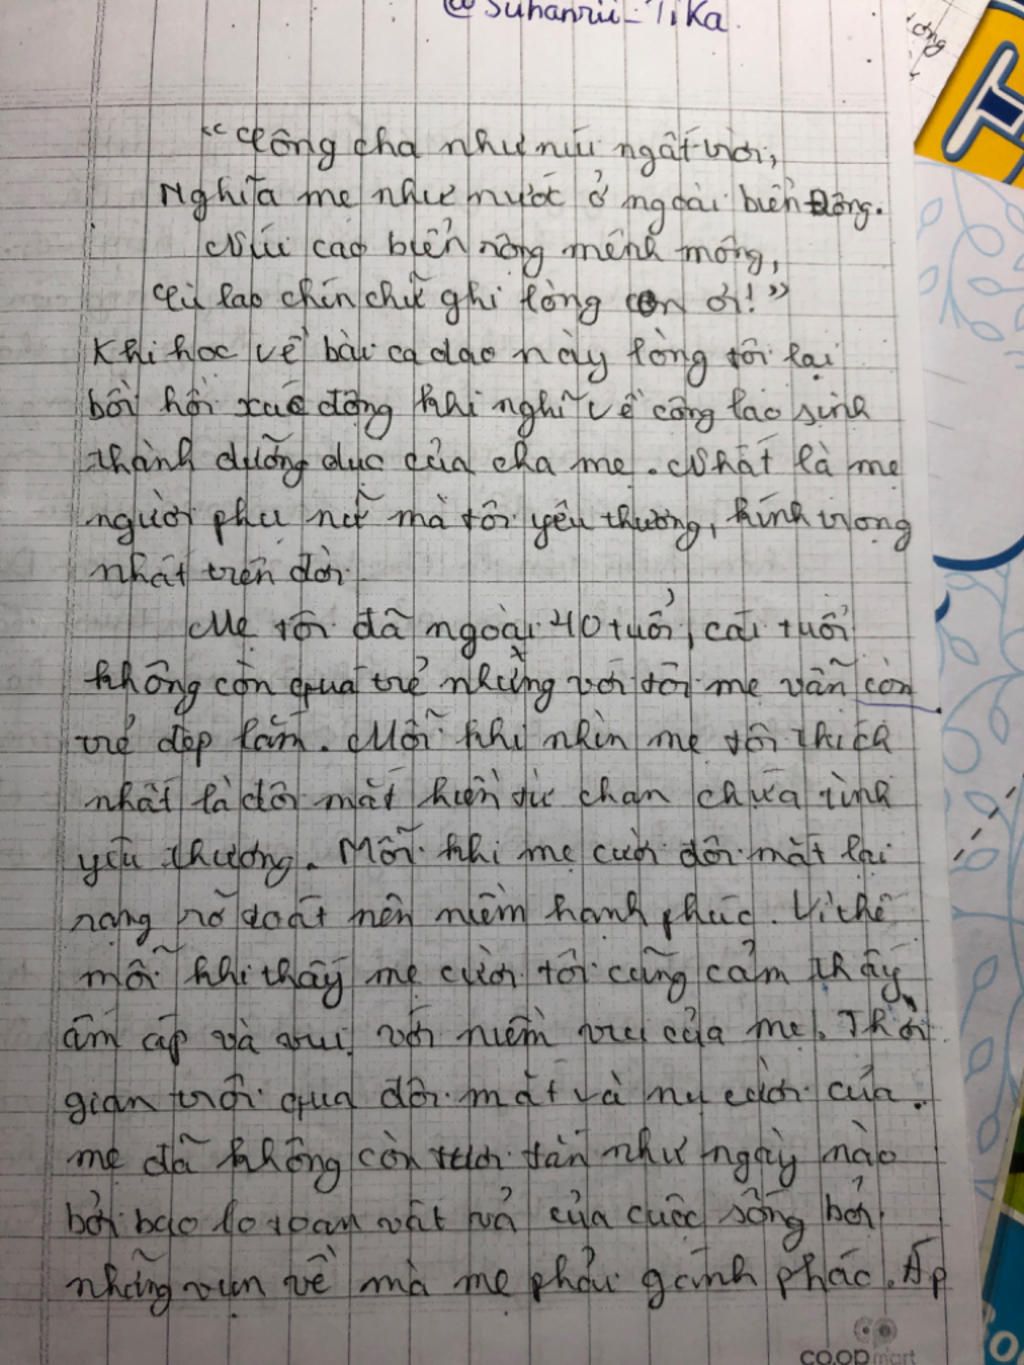 @Suhanrii_Tika.
"Công cha như núi ngất trời,
Nghĩa mẹ như nước ở ngoài biển Đông.
Núi cao biển rộng mênh mông,
Cù lao chín chữ ghi lòng con ơi!"
Khi học về bài ca dao này lòng tôi lại
bồi hồi xúc động khi nghĩ về công lao sinh
thành dưỡng dục của cha mẹ. Nhất là mẹ
người phụ nữ mà tôi yêu thương, kính trọng
nhất trên đời.
Mẹ tôi đã ngoài 40 tuổi, cái tuổi
không còn quá trẻ nhưng với tôi mẹ vẫn còn
trẻ đẹp lắm. Mỗi khi nhìn mẹ tôi thích
nhất là đôi mắt hiền từ chan chứa tình
yêu thương. Mỗi khi mẹ cười đôi mắt lại
rạng rỡ toát nên niềm hạnh phúc. Vì thế
mỗi khi thấy mẹ cười tôi cũng cảm thấy
ấm áp và vui với niềm vui của mẹ. Thời
gian trôi qua đôi mắt và nụ cười của
mẹ đã không còn tươi tắn như ngày nào
bởi bao lo toan vất vả của cuộc sống bởi
những vụn về mà mẹ phải gánh phác. Ấp
co.opmart